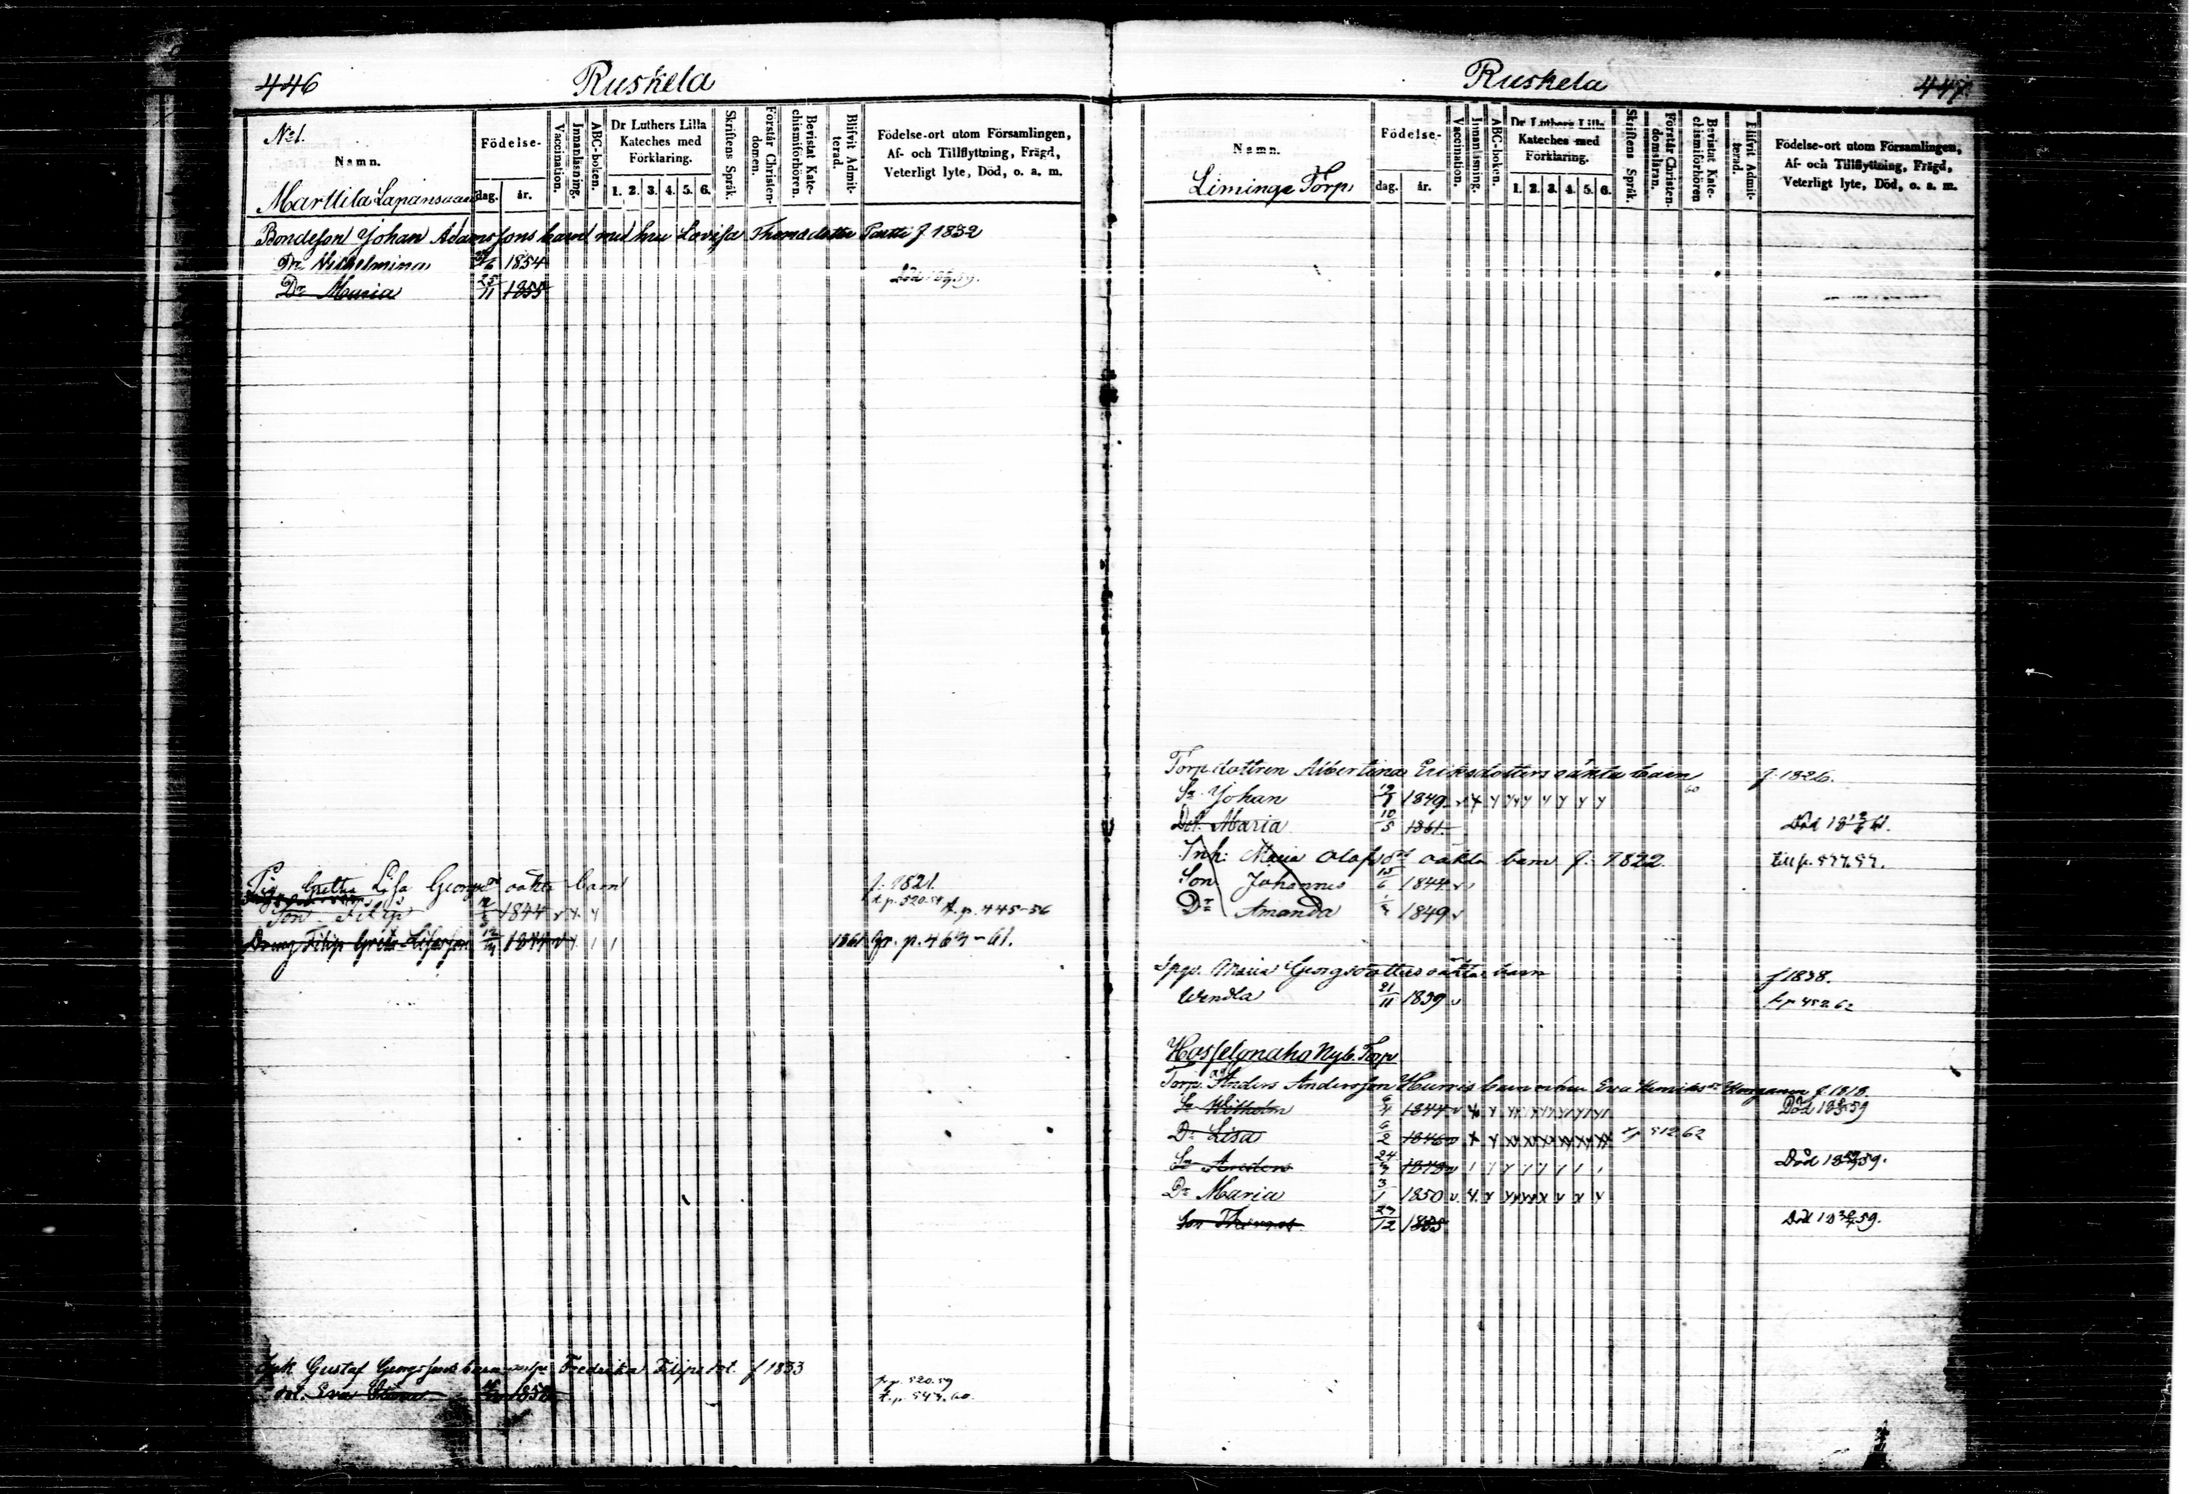 446 Ruskela
No 1.
Namn.
Födelse-
dag. år.
Vaccination.
Innanläsning.
ABC-boken.
Dr Luthers Lilla Kateches med Förklaring.
1. 2. 3. 4. 5. 6.
Skriftens Språk.
Förstår Christendomen.
Bevistat Katechismiförhören.
Blifvit Admitterad.
Födelse-ort utom Församlingen,
Af- och Tillflyttning, Frägd,
Veterligt lyte, Död, o. a. m.
Marttila Lapinsuan
Bondeson Johan Adamssons barn med hru Lovisa Thomasdotter f 1832
Dr Vilhelmina /6 1854
Dr Maria 25/11 1855 Död
Pig. Greta Lisa Georgsdt oäkta barn f. 1821.
Son Filip 1844 v x y t. p. 520.59 t. p. 445-56
Dreng Filip Greta Lisasson 1844 v y 1 1 1861 fr. p. 464-61.
Inh Gustaf Georgssons barn Fredrika Filipsdot. f 1833
dot. Eva 185 fr p. 520.59
t. p. 543.60.
Ruskela 447.
Namn.
Födelse-
dag. år.
Vaccination.
Innanläsning.
ABC-boken.
Dr Luthers Lilla
Kateches med
Förklaring.
1. 2. 3. 4. 5. 6.
Skriftens Språk.
Förstår Christendomsläran.
Bevistat Katechismiförhören
Blifvit Admitterad.
Födelse-ort utom Församlingen,
Af- och Tillflyttning, Frägd,
Veterligt lyte, Död, o. a. m.
Liminga Torp
Torp.dottren Albertina Eriksdotters oäkta barn f. 1826.
Sn Johan 1849 v x y y y y y y y y 60
Dot. Maria 10/5 1861 Död
Inh: Maria Olofsdt oäkta barn f. 1822 till p. 577.57.
Son Johannes 15/6 1844 v
Dr Amanda 1849 v
Spgv. Maria Georgsdotters oäkta barn f 1838.
Wendla 21/11 1859 v t p 452.62
Hasselgnaho Nyb. Torp
Torp. Anders Andersson Hurris barn m hru Eva Henriksdr f 1818.
Sn Wilhelm 1844 Död
Dr Lisa 6/2 1846 t p 512 62
Sn Anders 24 1848 Död
Dr Maria 3/1 1850
Son Thomas 27/12 1855 Död